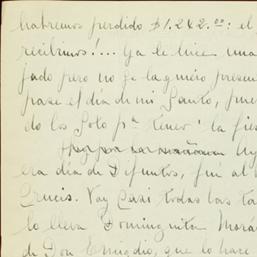 habremos perdido $1.242.00: el
recibimos!... Ya le hice una
jado pero no se la quiero presen
pase el día de mi Santo, pues
do los Soto pa tener la fies
era día de Difuntos, fuí al
Crucis. Voy casi todas las ta
lo lleva Dominguito Morá
de Don Emigdio, que lo hace